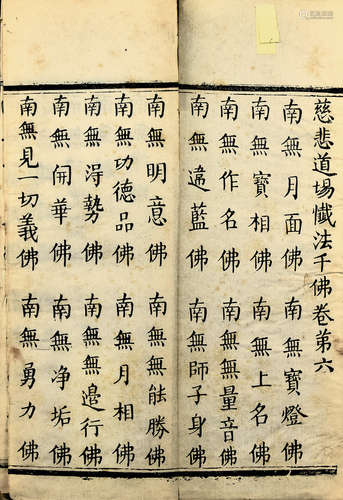 慈悲道場懺法千佛卷第六
南無月面佛 南無寶燈佛
南無寶相佛 南無上名佛
南無作名佛 南無無量音佛
南無違藍佛 南無師子身佛
南無明意佛 南無無能勝佛
南無功德品佛 南無月相佛
南無淂勢佛 南無無邊行佛
南無開華佛 南無净垢佛
南無見一切義佛 南無勇力佛